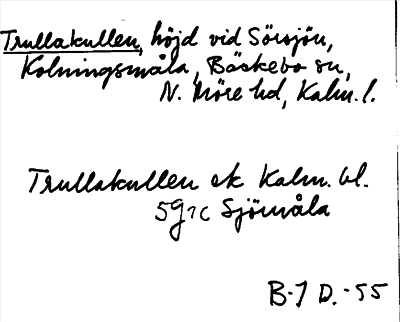 Trullakullen, höjd vid Sörsjön,
Kolningsmåla, Bäckebo sn,
N. Möre hd, Kalm. l.
Trullakullen ek Kalm. bl.
5G7c Sjömåla
B-7 D.-55